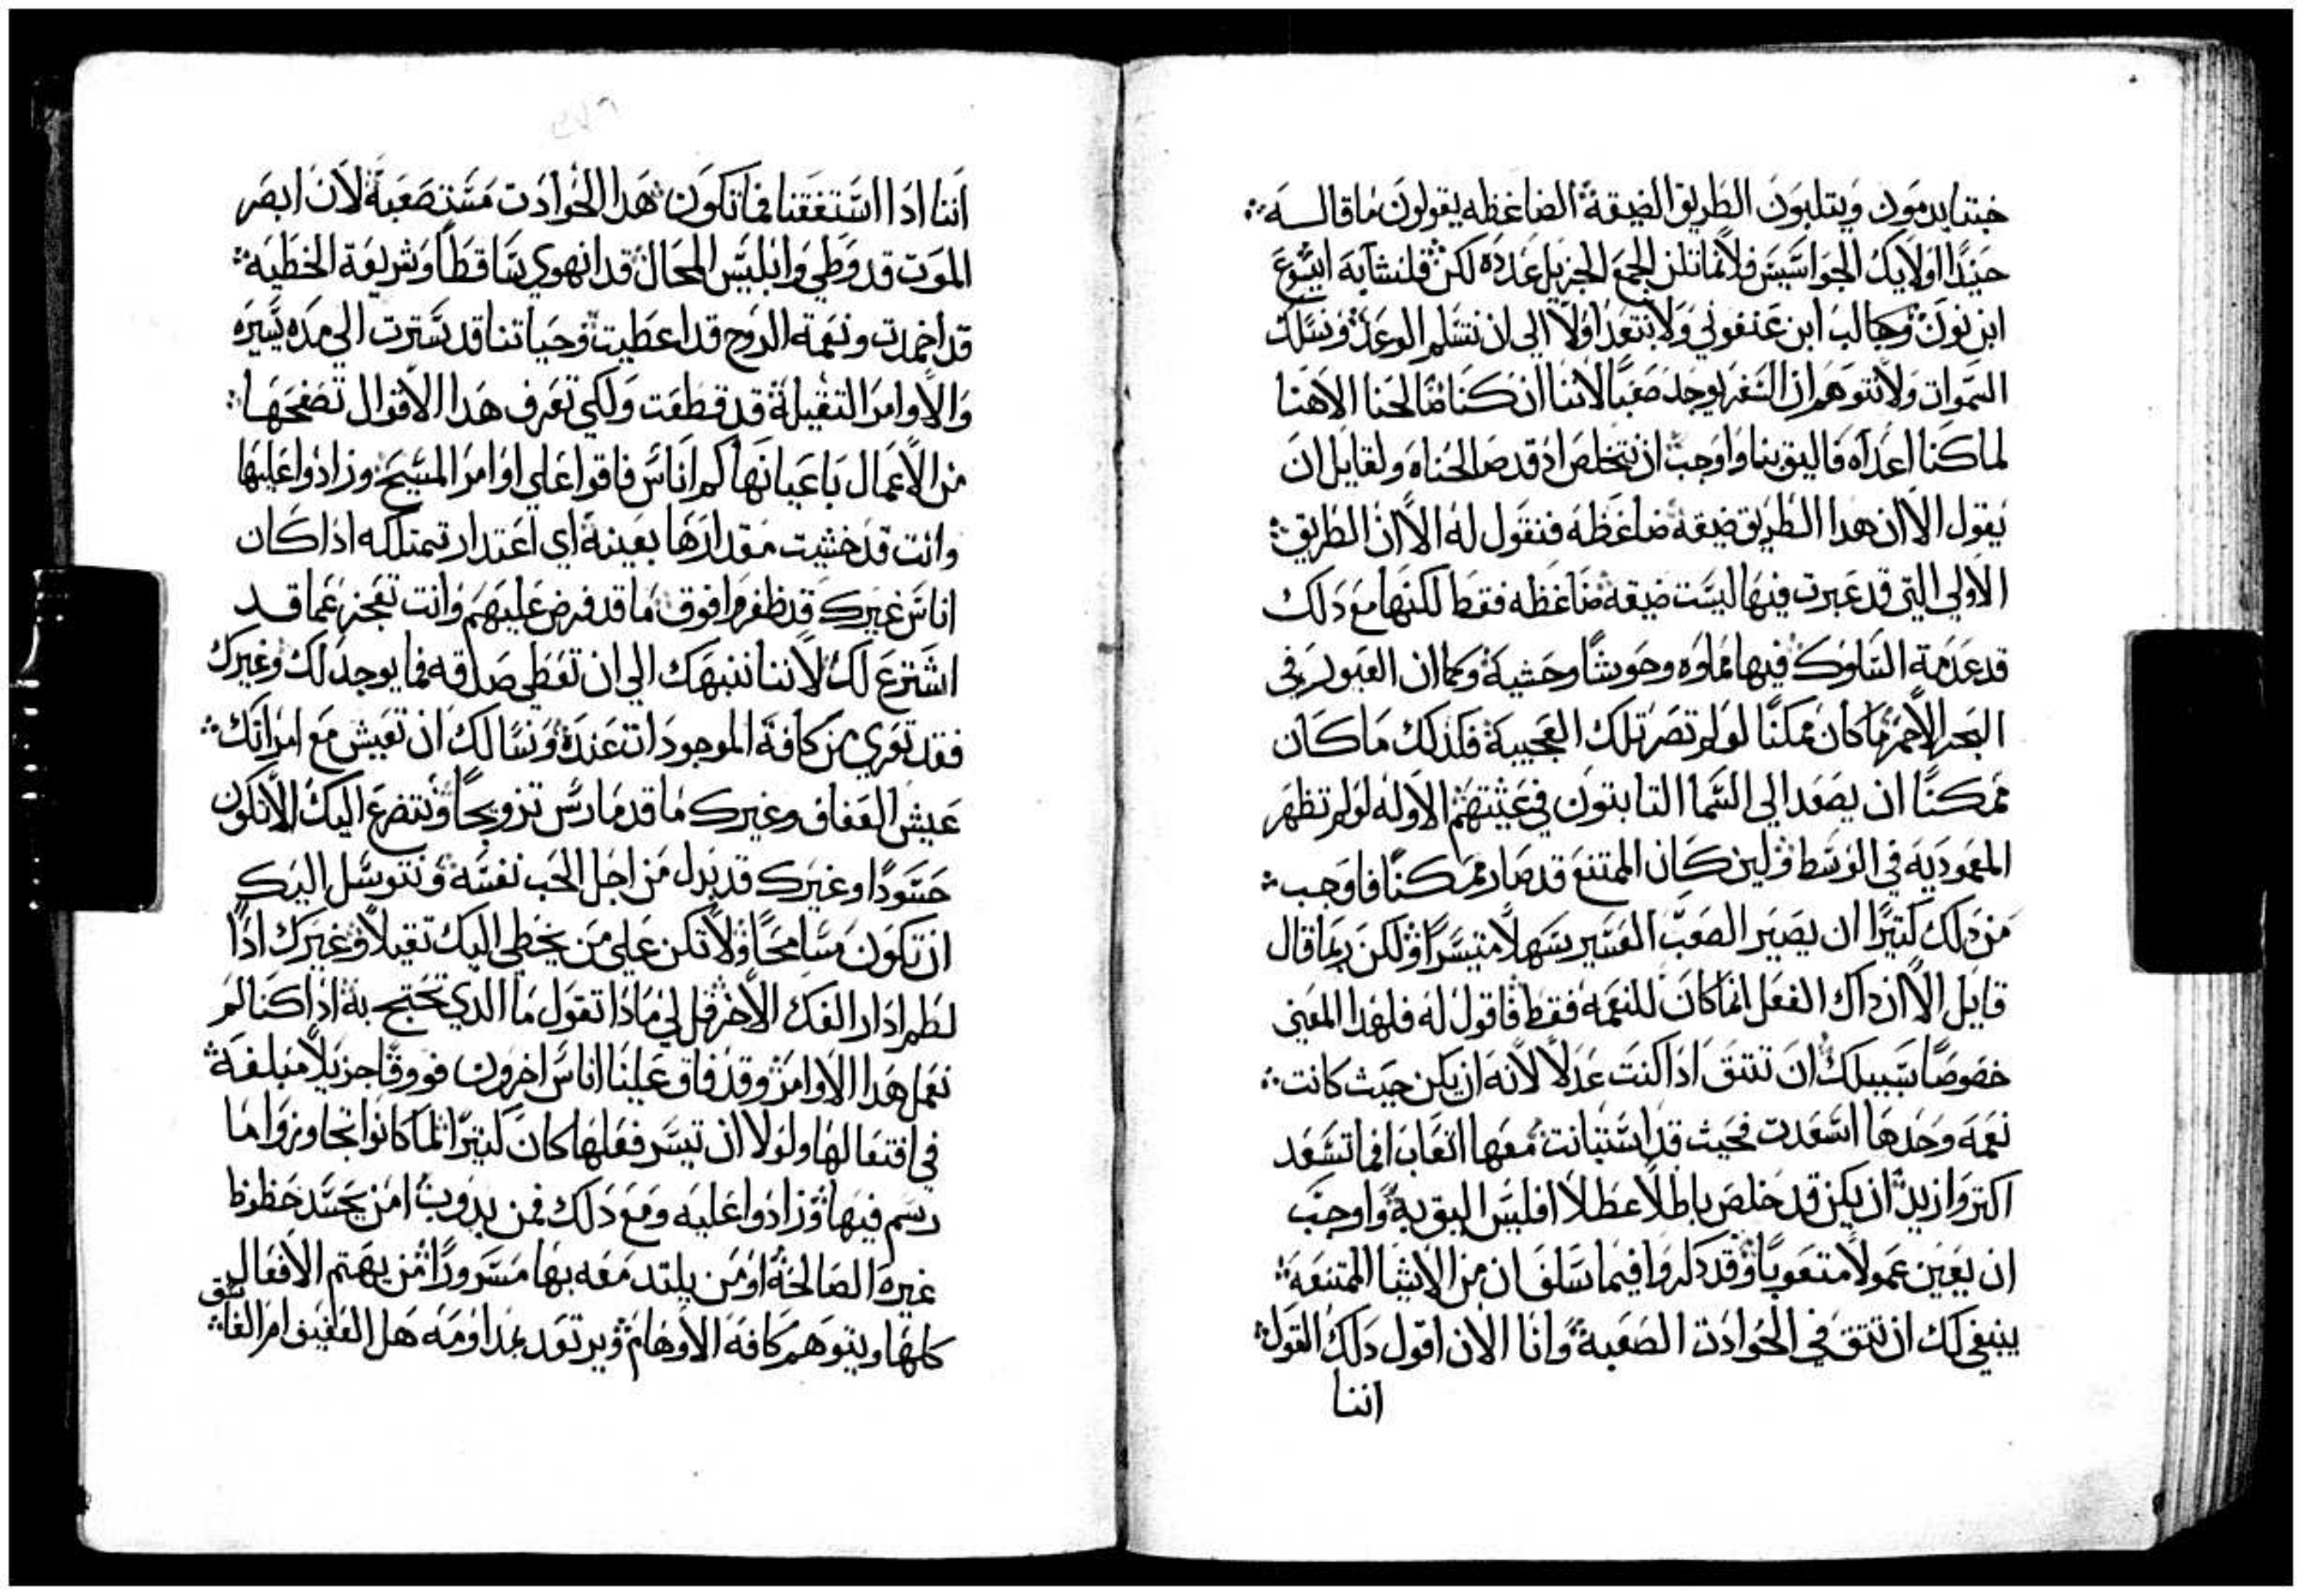 خبتنا يدمون ويتلبون الطريق الضيقة الضاغظه يقولون ما قاله
حينذا اوليك الجواسيس فلا نماتلن الجمع الجزيل عدده لكن فلنشابه ايشوع
ابن نون وكالب ابن عنفوني ولا نتعد اولا الي ان نتسلم الوعد ونسلك
السموات ولا نتوهم ان السفر يوجد صعبا لاننا ان كنا قتالحنا الاهنا
لما كنا اعداه فاليق بنا واوجب ان نتخلص اذ قد صالحناه ولقايل ان
يقول الا ان هدا الطريق ضيقه ضاغظه فنقول له الا ان الطريق
الاولي التي قد عبرت فيها ليست ضيقه ضاغظه فقط لكنها مع دلك
قد عدمة السلوك فيها مملوه وحوشا وحشية وكما ان العبور في
البحر الاحمر ما كان ممكنا لو لم تصر تلك العجيبة فكذلك ما كان
ممكنا ان يصعد الي السما التابتون في عيشتهم الاوله لو لم تظهر
المعموديه في الوسط ولين كان الممتنع قد صار ممكنا فاوجب
من دلك كتيرا ان يصير الصعب العسير سهلا متيسرا ولكن ربما قال
قايل الا ان داك الفعل انما كان للنعمه فقط فاقول له فلهدا المعني
خصوصا سبيلك ان تتق ادا كنت عدلا لانه ان يكن حيث كانت
نعمه وحدها اسعدت فحيث قد استبانت معها اتعابا افما تسعد
اكتر وازيد ان يكن قد خلص باطلا عطلا افليس اليق به واوجب
ان يعين عمولا متعوبا وقد دكروا فيما سلف ان من الاشيا الممتنعه
ينبغي لك ان تتق في الحوادت الصعبة وانا الان اقول دلك القول
اننا
اننا ادا استفقنا فما تكون هدا الحوادت مستصعبة لان ابصر
الموت قد وطي وابليس المحال قد انهوي ساقطا وشريعة الخطيه
قد اخمدت ونعمة الروح قد اعطيت وحياتنا قد سترت الي مده يسيره
والاوامر التقيلة قد قطعت ولكي تعرف هدا الاقوال تصفحها
من الاعمال باعيانها كم اناس فاقوا علي اوامر المسيح وزادوا عليها
وانت قد خشيت مقدارها بعينة اي اعتدار تمتلكه اذا كان
اناس غيرك قد ظفروا فوق ما قد فرض عليهم وانت تعجز عما قد
اشترع لك لاننا ننبهك الي ان تعطي صدقه فما يوجد لك وغيرك
فقد تعري من كافة الموجودات عنده ونسالك ان تعيش مع امراتك
عيش العفاف وغيرك ما قد مارس تزويجا ونتضرع اليك الا تكون
حسودا وغيرك قد بدل من اجل الحب نفسه ونتوسل اليك
ان تكون مسامحا ولا تكن علي من يخطي اليك تقيلا وغيرك اذا
لطم ادار الفك الاخر قل لي ماذا تقول ما الدي تحتج به اذا كنا لم
نعمل هدا الاوامر وقد فاق علينا اناس اخرون فووقا جزيلا مبلغة
في افتعالها ولولا ان تيسر فعلها كان كتيرا لما كانوا تجاوزوا ما
رسم فيها وزادوا عليه ومع دلك فمن يدوب امن يحسد حظوظ
غيره الصالحة او من يلتد معه بها مسرورا من يهتم الافعال
كلها ويتوهم كافة الاوهام ويرتعد بمداومة هل العفيف ام الفاسق